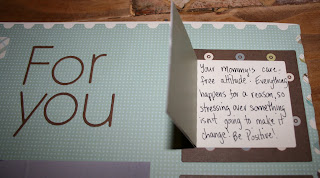 For
you
Your Mommy's care-
free attitude. Everything
happens for a reason, so
stressing over something
isn't going to make it
change. Be Positive!